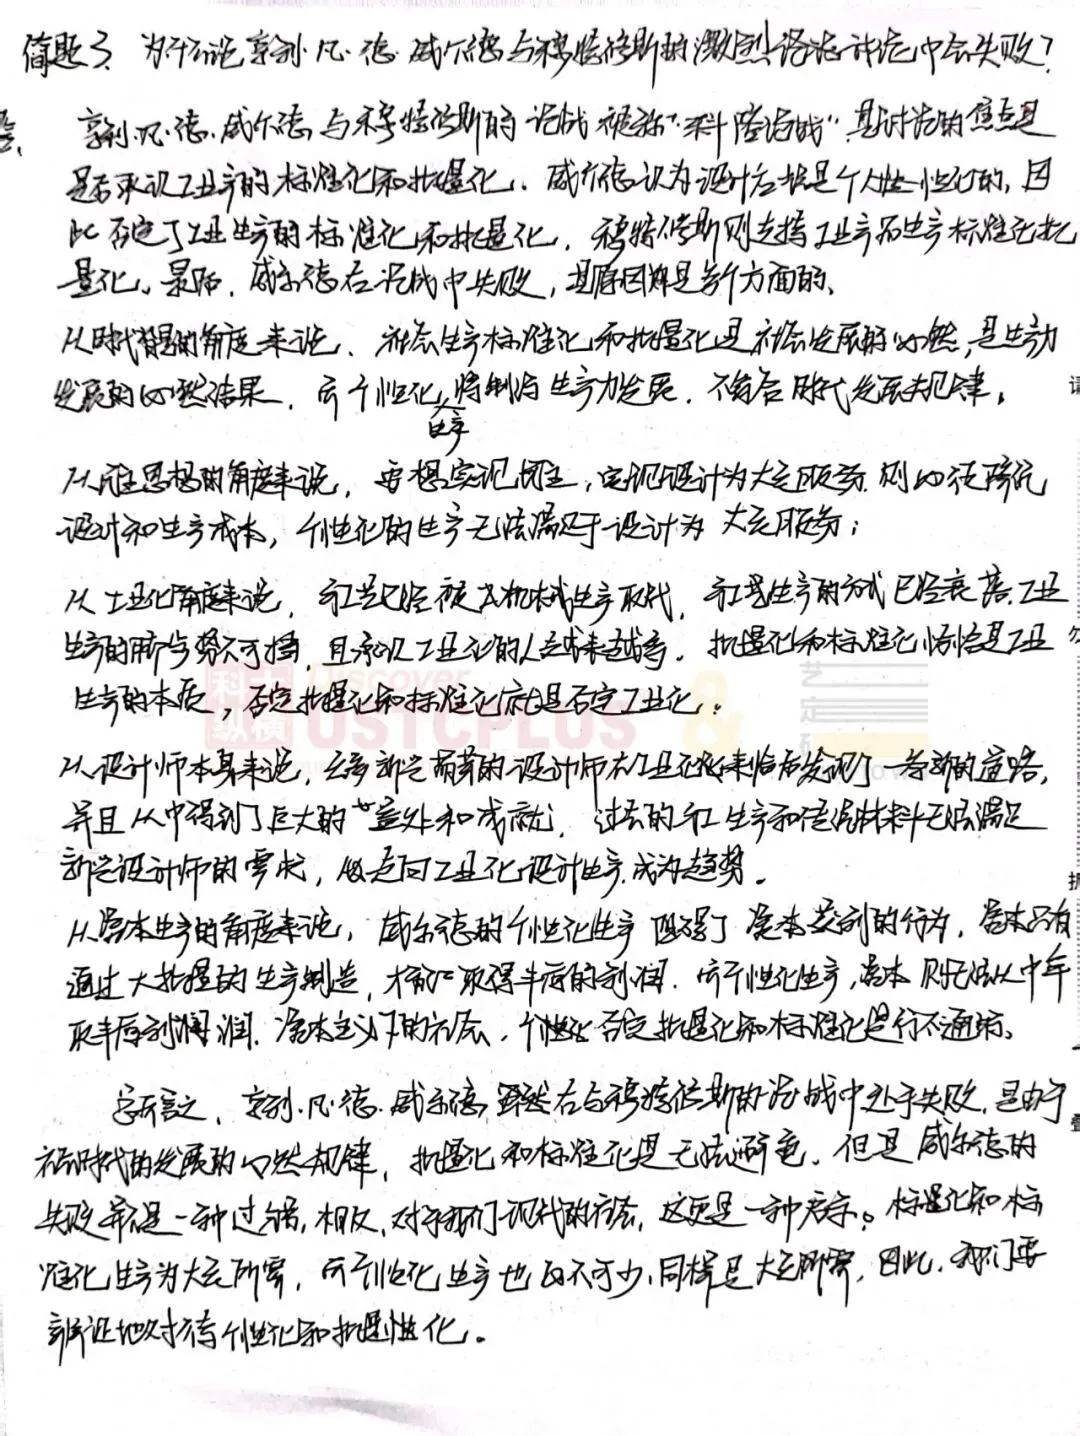 简题3. 为什么说亨利·凡·德·威尔德与穆特修斯的激烈论战讨论中会失败？
答、 亨利·凡·德·威尔德与穆特修斯的论战被称"科隆论战"，其讨论的焦点是
是否承认工业生产的标准化和批量化。威尔德认为设计应根是个人性性化的，因
此否定了工业生产的标准化和批量化，穆特修斯则支持工业产品生产标准化批
量化。最后，威尔德在论战中失败，其原因将是多个方面的。
从时代背景的角度来说、社会生产标准化和批量化是社会发展的必然，是生产力
发展的必然结果，而个性化生产将制约生产力发展，不符合时代发展规律。
从民主思想的角度来说，要想实现民主，实现设计为大众服务则必须降低
设计和生产成本，个性化的生产无法满足于设计为大众服务；
从工业化角度来说，手工艺已经被大机械生产取代，手工艺生产的方式已经衰落，工业
生产的阶与势不可挡，且承认工业化的人越来越多，批量化和标准化恰恰是工业
生产的本质，否定批量化和标准化就是否定工业化。
从设计师本身来说，经多新兴前革的设计师在工业化到来临后发现了一条新的道路，
并且从中得到了巨大的益处和成就，过去的手工生产和传统材料无法满足
新兴设计师的需求，故走向工业化设计生产成为趋势。
从资本生产的角度来说，威尔德的个性化生产阻碍了资本获利的行为，资本只有
通过大批量的生产制造，才能取得丰厚的利润，而个性化生产，资本则无法从中牟
取丰厚利润润，资本主义下的社会，个性化否定批量化和标准化是行不通的。
总而言之，亨利·凡·德·威尔德虽然在与穆特修斯的论战中处于失败，是由于
社会时代的发展的必然规律，批量化和标准化是无法避免，但是威尔德的
失败并不是一种过错，相反，对于我们现代的社会，这更是一种启示。标量化和标
准化生产为大众所需，而个性化生产也必不可少，同样是大众所需，因此，我们要
辩证地对待个性化和批量性化。
科大纵横
Discover
USTCPLUS
&
艺
定